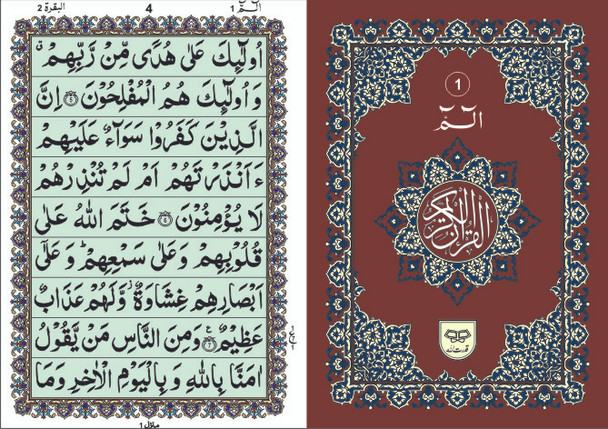 البقرة 2
4
الٓمّٓ 1
اُولٰٓئِكَ عَلٰى هُدًى مِّنْ رَّبِّهِمْ ۗ
وَ اُولٰٓئِكَ هُمُ الْمُفْلِحُوْنَ ۝ اِنَّ
الَّذِيْنَ كَفَرُوْا سَوَآءٌ عَلَيْهِمْ
ءَاَنْذَرْتَهُمْ اَمْ لَمْ تُنْذِرْهُمْ
لَا يُؤْمِنُوْنَ ۝ خَتَمَ اللّٰهُ عَلٰى
قُلُوْبِهِمْ وَعَلٰى سَمْعِهِمْ ؕ وَعَلٰٓى
اَبْصَارِهِمْ غِشَاوَةٌ ۚ وَّلَهُمْ عَذَابٌ
عَظِيْمٌ ۝ وَمِنَ النَّاسِ مَنْ يَّقُوْلُ
اٰمَنَّا بِاللّٰهِ وَ بِالْيَوْمِ الْاٰخِرِ وَمَا
منزل 1
1
الٓمّٓ
القرآن الكريم
قدرت الله